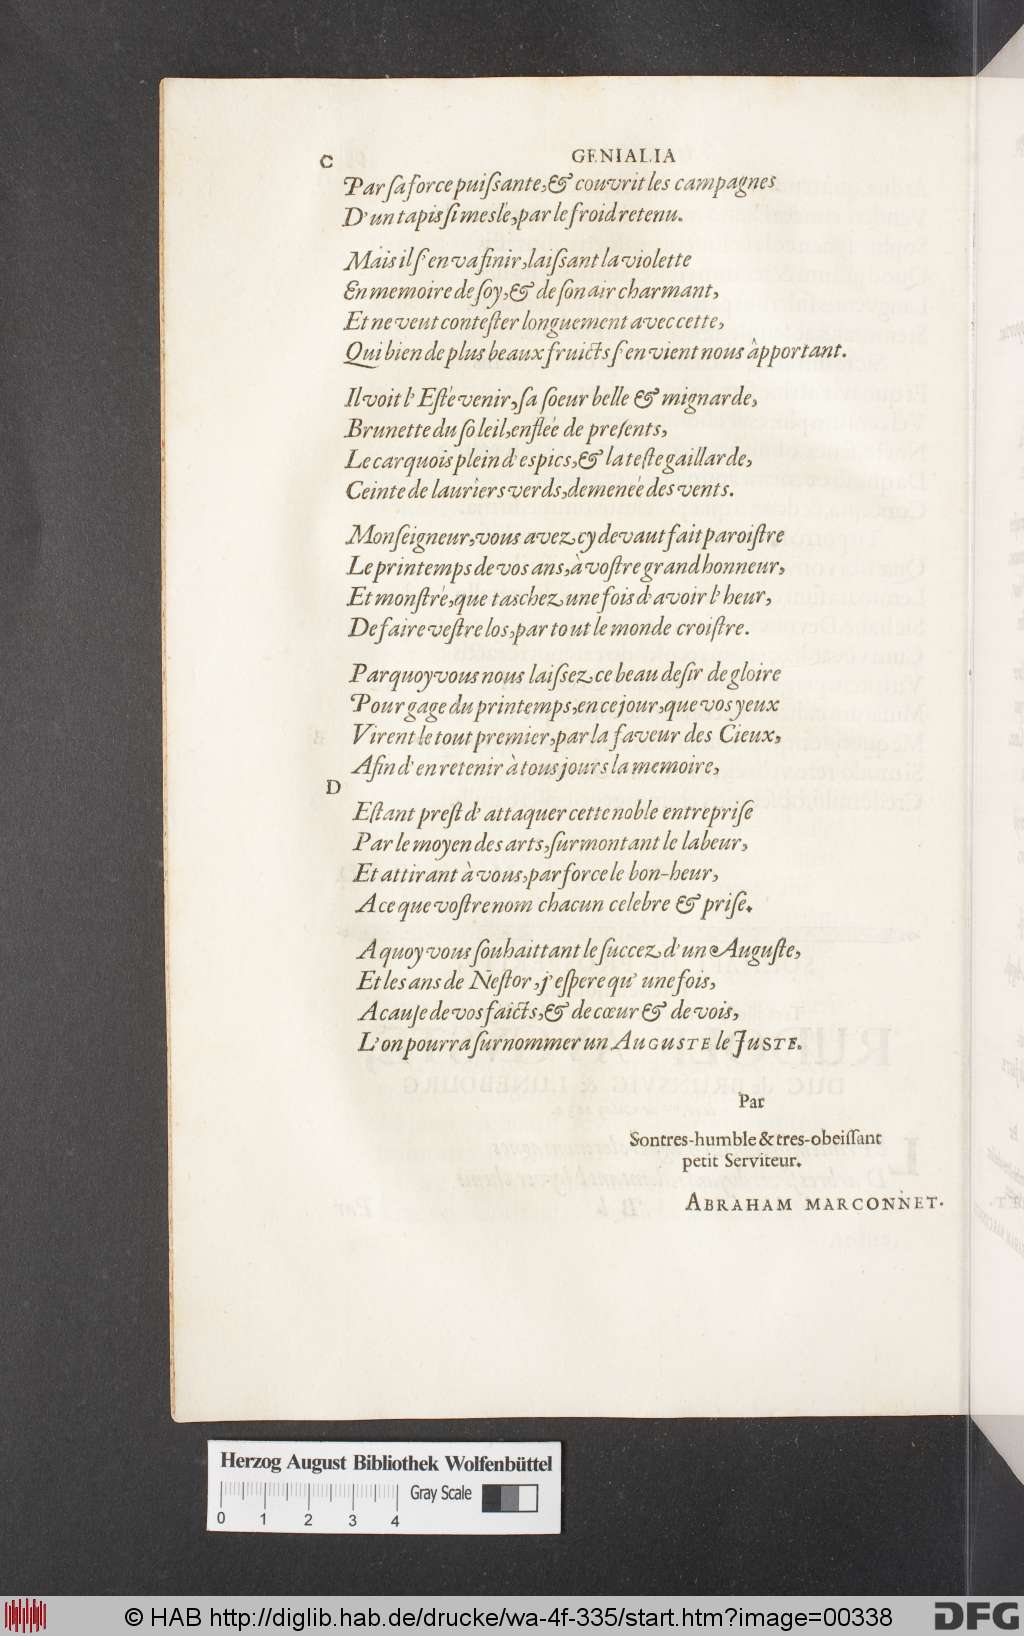 C GENIALIA
Par ſa force puiſsante, & couvrit les campagnes
D'un tapis ſi meslé, par le froid retenu.
Mais il ſ'en va finir, laiſsant la violette
En memoire de ſoy, & de ſon air charmant,
Et ne veut conteſter longuement avec cette,
Qui bien de plus beaux fruicts ſ'en vient nous àpportant.
Il voit l'Eſté venir, ſa ſoeur belle & mignarde,
Brunette du ſoleil, enflée de preſents,
Le carquois plein d'espics, & la teſte gaillarde,
Ceinte de lauriers verds, demeneé des vents.
Monſeigneur, vous avez cy devaut fait paroiſtre
Le printemps de vos ans, à voſtre grand honneur,
Et monſtré, que taschez une fois d'avoir l'heur,
De faire veſtre los, par tout le monde croiſtre.
Parquoy vous nous laiſsez ce beau deſir de gloire
Pour gage du printemps, en ce jour, que vos yeux
Virent le tout premier, par la faveur des Cieux,
Afin d'en retenir à tousjours la memoire,
D
Eſtant preſt d'attaquer cette noble entrepriſe
Par le moyen des arts, ſurmontant le labeur,
Et attirant à vous, par force le bon-heur,
A ce que voſtre nom chacun celebre & priſe.
A quoy vous ſouhaittant le ſuccez d'un Auguſte,
Et les ans de Neſtor, j'eſpere qu' une fois,
A cauſe de vos faicts, & de cœur & de vois,
L'on pourra ſurnommer un AUGUSTE le JUSTE.
Par
Son tres-humble & tres-obeiſſant
petit Serviteur.
ABRAHAM MARCONNET.
Herzog August Bibliothek Wolfenbüttel
Gray Scale
0 1 2 3 4
© HAB http://diglib.hab.de/drucke/wa-4f-335/start.htm?image=00338
DFG